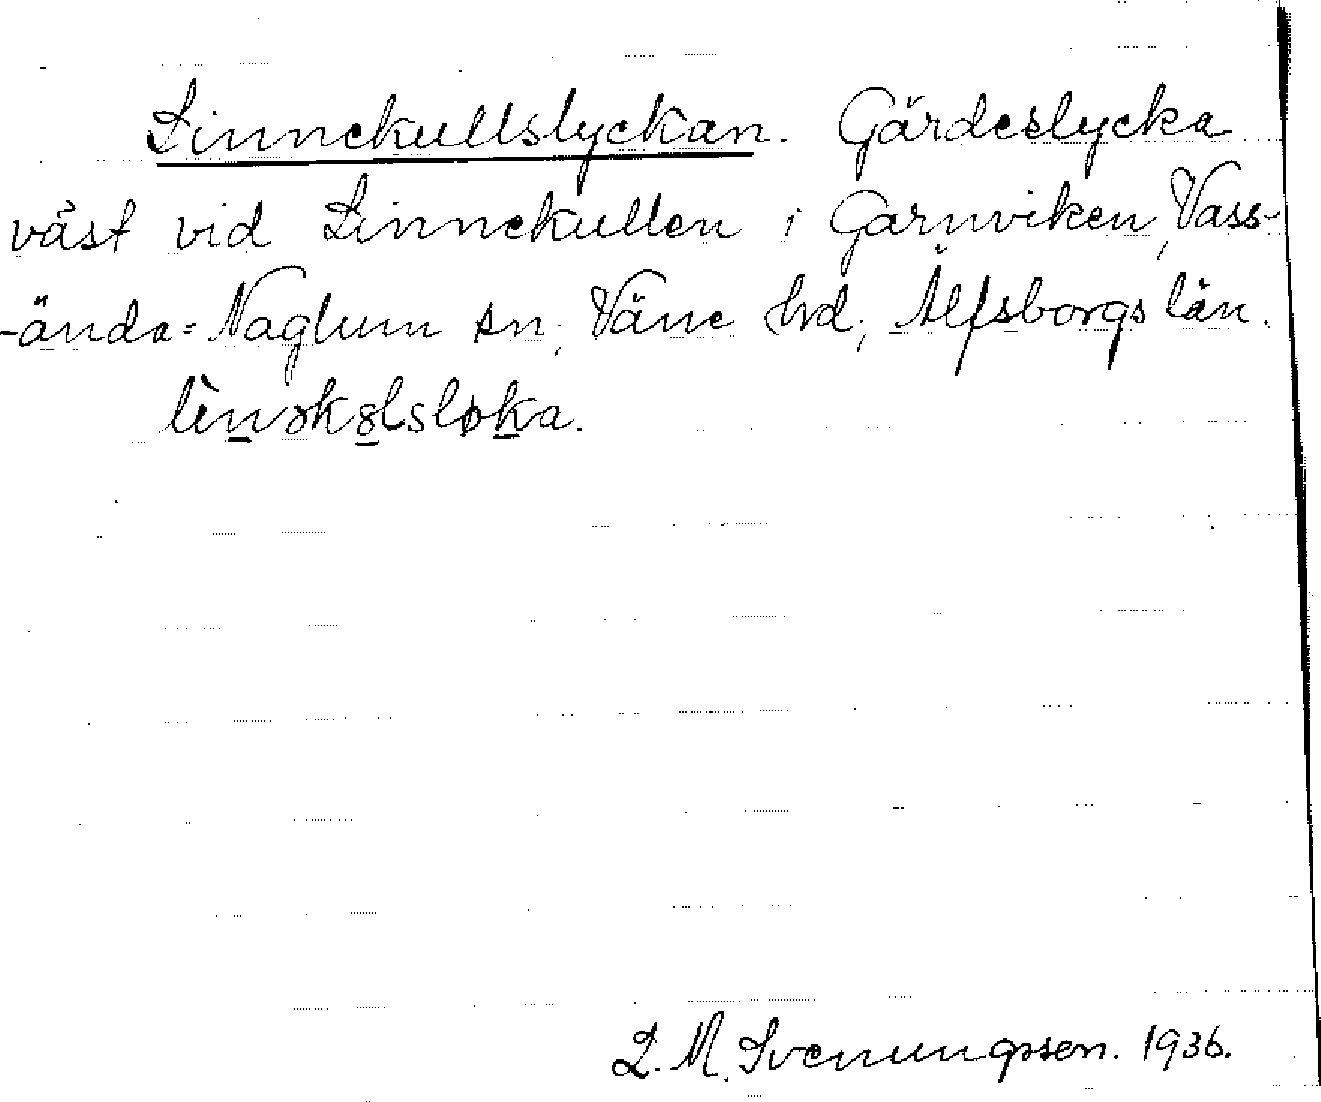 Linnekullslyckan. Gärdeslycka
väst vid Linnekullen i Garnviken, Vass-
-ända-Naglum sn, Väne hd, Älfsborgs län.
lènəkȣlsløka.
L. M. Svenungsson. 1936.